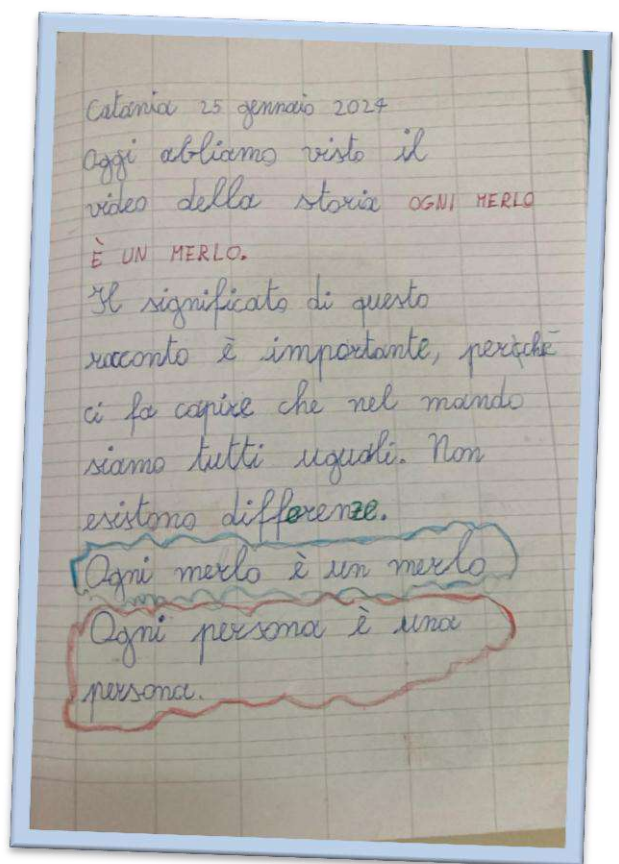 Catania 25 gennaio 2024
Oggi abbiamo visto il
video della storia OGNI MERLO
È UN MERLO.
Il significato di questo
racconto è importante, perchè
ci fa capire che nel mondo
siamo tutti uguali. Non
esistono differenze.
Ogni merlo è un merlo
Ogni persona è una
persona.